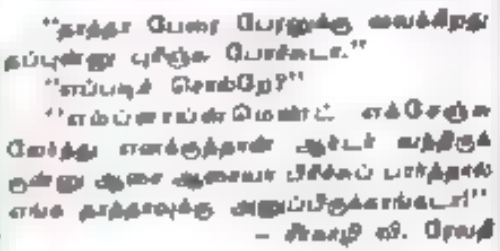 "தாத்தா பேரை பேரனுக்கு வைக்கிறது
தப்புன்னு புரிஞ்சு போச்சுடா."
"எப்படிச் சொல்றே?"
"எம்ப்ளாய்ன்மெண்ட் எக்சேஞ்சு
லேர்ந்து எனக்குத்தான் ஆர்டர் வந்திருக்
குன்னு ஆசை ஆசையா பிரிச்சுப் பார்த்தால்
எங்க தாத்தாவுக்கு அனுப்பிருக்காங்கடா!"
– சிகரமூரி வி. ரேவதி